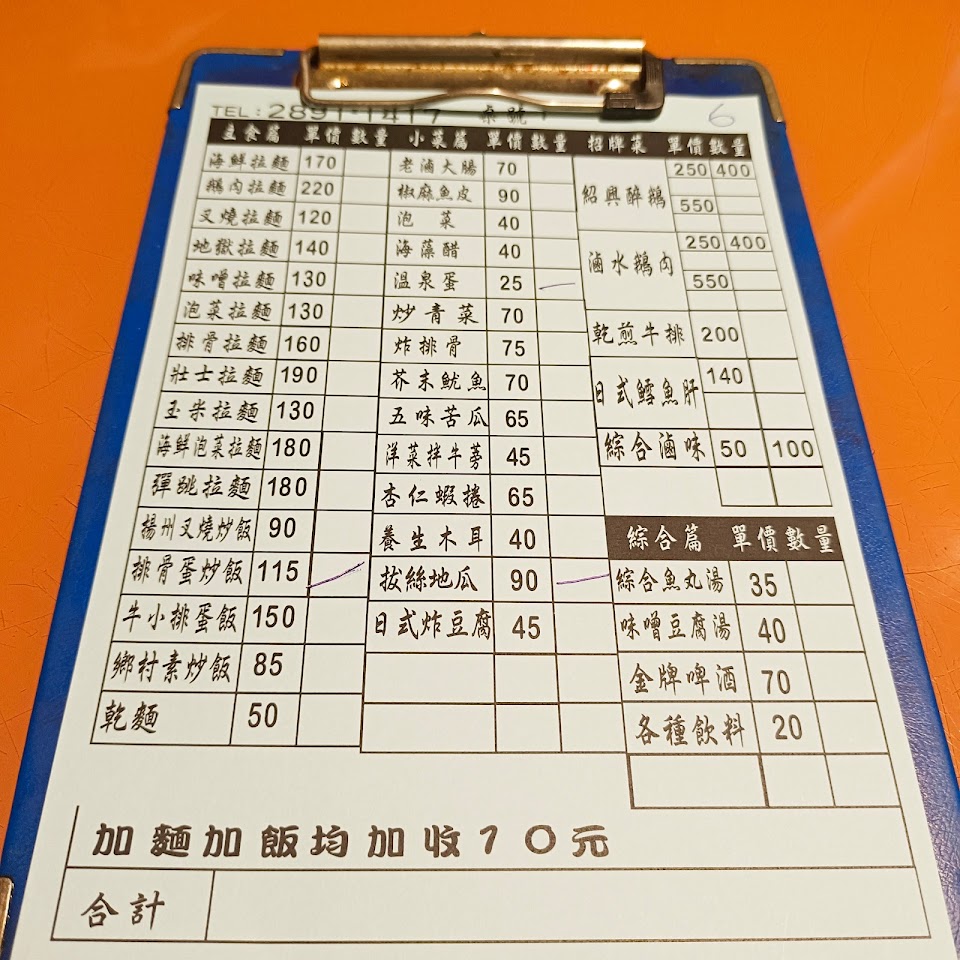 TEL:2891-1417 桌號: 6
主食篇 單價 數量 小菜篇 單價 數量 招牌菜 單價 數量
海鮮拉麵 170
鵝肉拉麵 220
叉燒拉麵 120
地獄拉麵 140
味噌拉麵 130
泡菜拉麵 130
排骨拉麵 160
壯士拉麵 190
玉米拉麵 130
海鮮泡菜拉麵 180
彈跳拉麵 180
揚州叉燒炒飯 90
排骨蛋炒飯 115
牛小排蛋飯 150
鄉村素炒飯 85
乾麵 50
老滷大腸 70
椒麻魚皮 90
泡菜 40
海藻醋 40
溫泉蛋 25
炒青菜 70
炸排骨 75
芥末魷魚 70
五味苦瓜 65
洋菜拌牛蒡 45
杏仁蝦捲 65
養生木耳 40
拔絲地瓜 90
日式炸豆腐 45
紹興醉鵝 250 400
550
滷水鵝肉 250 400
550
乾煎牛排 200
日式鱈魚肝 140
綜合滷味 50 100
綜合篇 單價 數量
綜合魚丸湯 35
味噌豆腐湯 40
金牌啤酒 70
各種飲料 20
加麵加飯均加收10元
合計